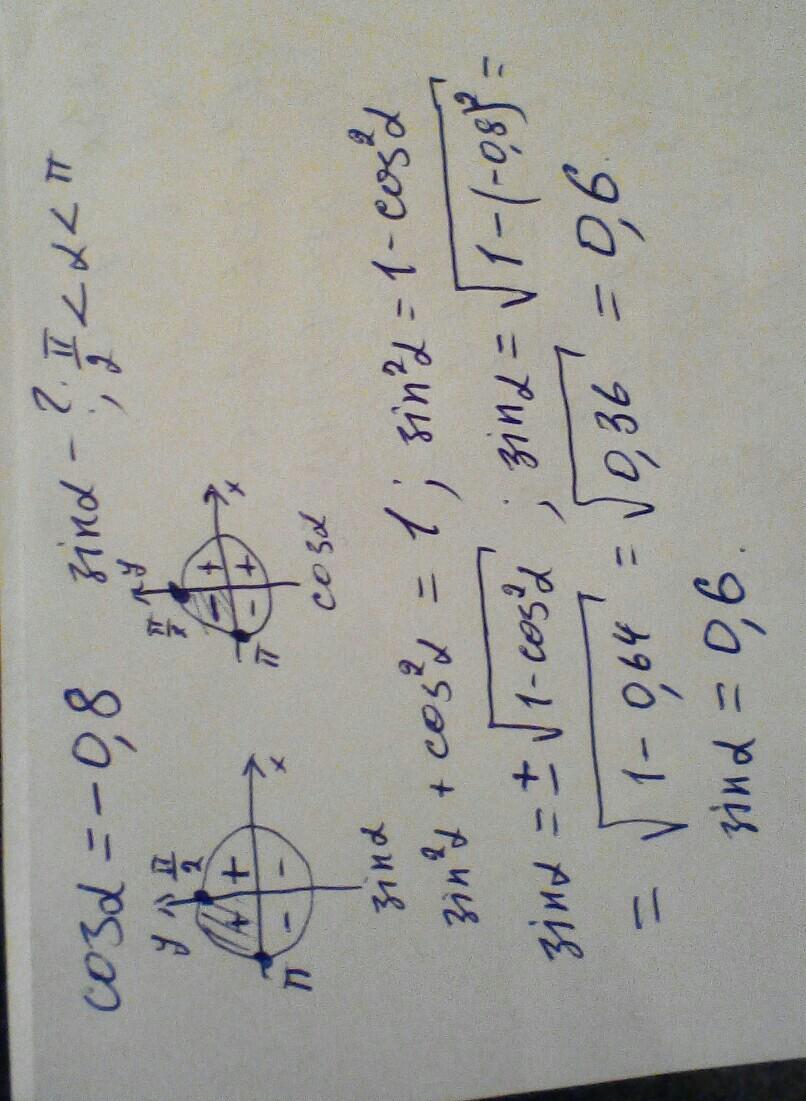 cosα = -0,8 sinα - ? ; π/2 < α < π
y π/2 x π + + - -
y π/2 x π - + - +
sinα cosα
sin²α + cos²α = 1 ; sin²α = 1 - cos²α
sinα = ±√1-cos²α ; sinα = √1-(-0,8)² =
= √1-0,64 = √0,36 = 0,6.
sinα = 0,6.